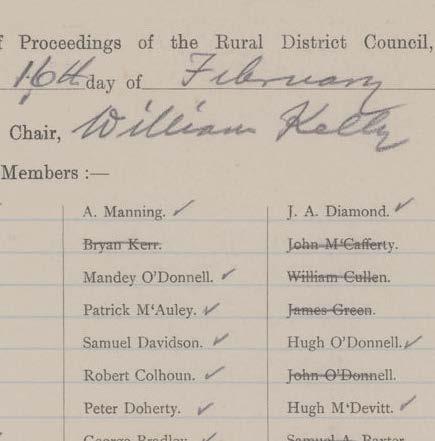 f Proceedings of the Rural District Council,
16th day of February
Chair, William Kelly
Members :—
A. Manning. ✓ J. A. Diamond. ✓
Bryan Kerr. John M‘Cafferty.
Mandey O’Donnell. ✓ William Cullen.
Patrick M‘Auley. ✓ James Green.
Samuel Davidson. ✓ Hugh O’Donnell. ✓
Robert Colhoun. ✓ John O’Donnell.
Peter Doherty. ✓ Hugh M‘Devitt. ✓
George Bradley. ✓ Samuel A. Baxter.